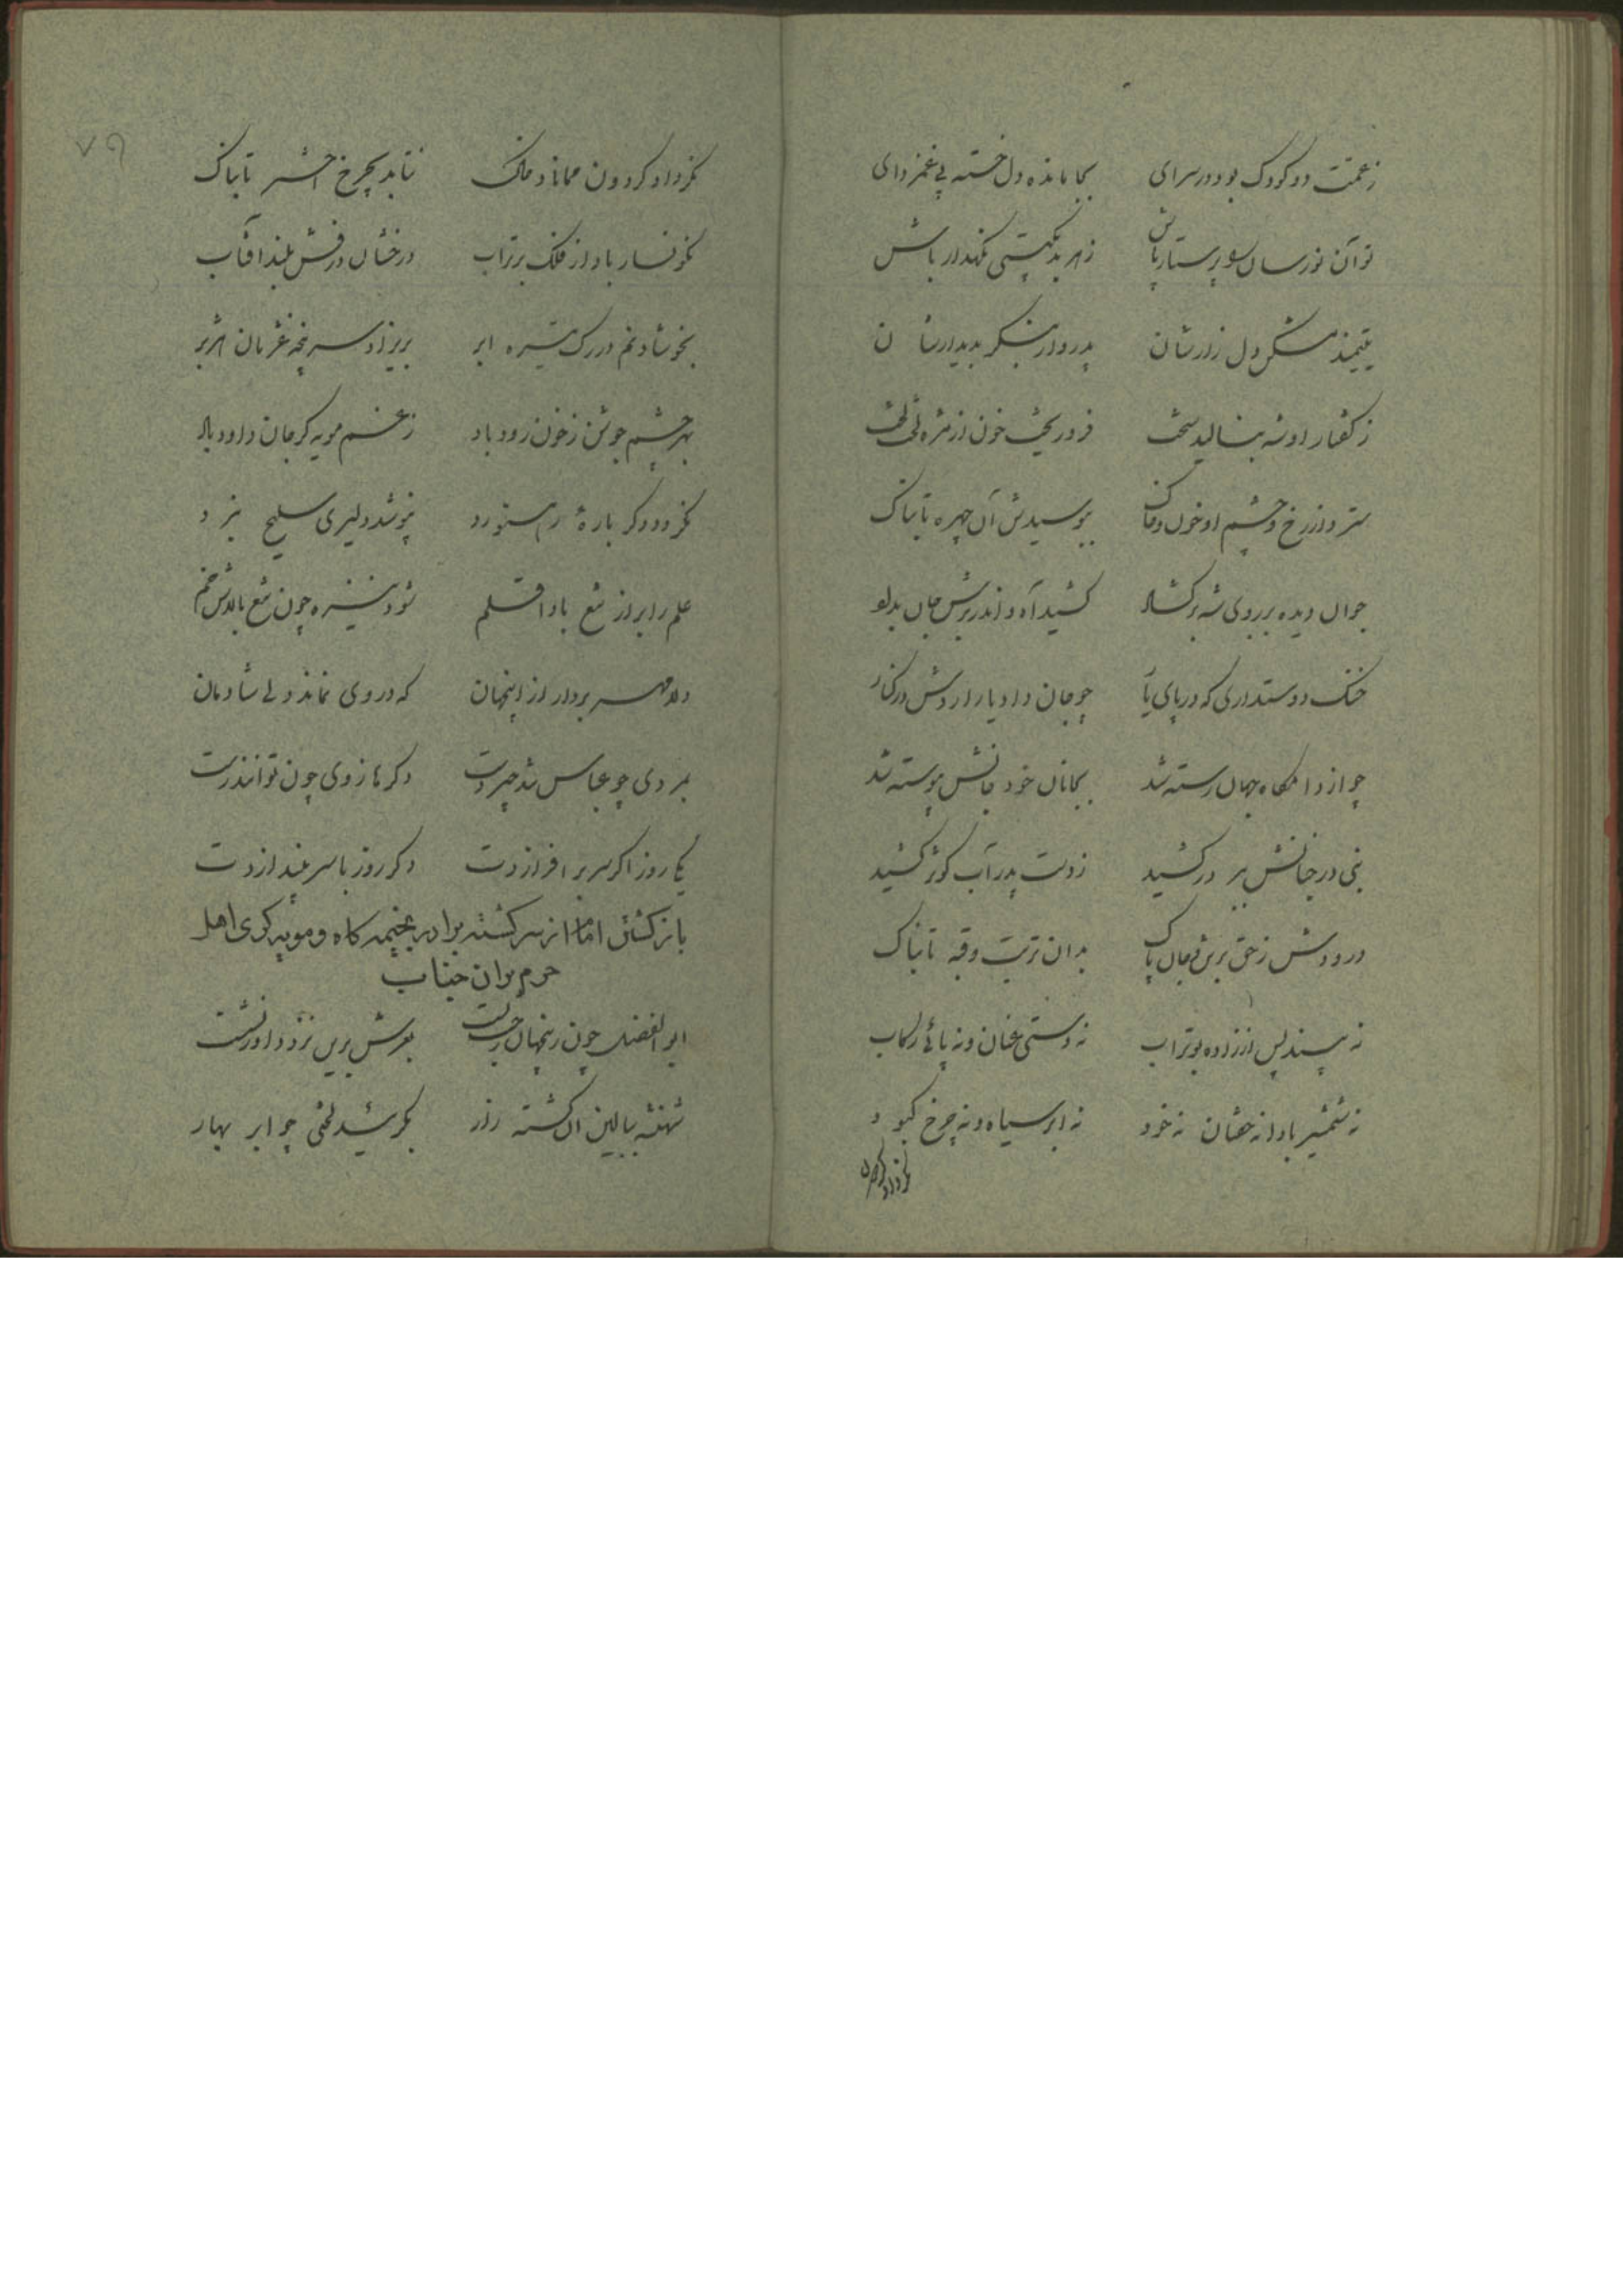 زعمت دو کودک بود در سرای بجا مانده دل خسته بی غمزدای
تو آن نورسان را پرستار باش زهر بد بگیتی نگهدار باش
یتیمند مشکن دل زارشان پدروار بنگر بدیدارشان
ز گفتار او شه بنالید سخت فرو ریخت خون از مژه لخت لخت
سترد از رخ و چشم او خون و خاک ببوسیدش آن چهره تابناک
جوان دیده بر روی شه برگشاد کشید آه و اندر برش جان بداد
خنک دوستداری که در پای یار چو جان داد یار اردش در کنار
چو از دامگاه جهان رسته شد بجانان خود جانش پیوسته شد
نبی در جنانش ببر در کشید ز دست پدر آب کوثر کشید
درودش ز حق بر تن و جان پاک بدان تربت و قبه تابناک
نه پسندیس از زاده بوتراب نه دستی عنان و نه پائی رکاب
نه شمشیر بادا نه خفتان نه خود نه ابر سیاه و نه چرخ کبود
۷۹
نگرداد گردون مماناد خاک نتابد بچرخ اختر تابناک
نگونسار باد از فلک بر تراب درخشان درفش بلند آفتاب
بخوشاد نم در رگ تیره ابر بریزاد سرپنجه غژمان هژبر
بهر چشم جوشن ز خون رود باد ز غم مویه گر جان داود باد
نگردد دگر باره رهنورد نپوشد دلیری سلیح نبرد
علم را بر از تیغ بادا قلم شود نیزه چون تیغ بالاش خم
دلا مهر بردار از اینجهان که در وی نماند دلی شادمان
بمردی چو عباس شد چیردست دگر تا ز وی چون توانند رست
یکی روز اگر سر بر افرازدت دگر روز با سر بیندازدت
باز گشتن امام از سر کشته برادر بخیمه گاه و مویه گری اهل
حرم بر آن جناب
ابوالفضل چون زینجهان رخت بست بعرش برین نزد داور نشست
شهنشه ببالین آن کشته زار بگرئید لختی چو ابر بهار